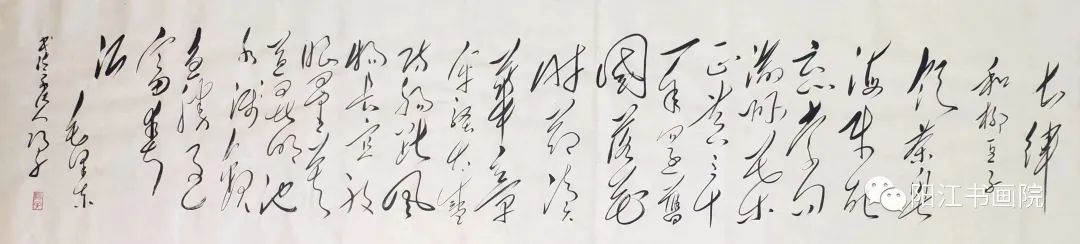 长律
和柳亚子
饮茶粤
海未能
忘索句
渝州葉
正黄三十
一年還舊
國落花
时节读
華章
牢騷太盛
防腸斷風
物长宜放
眼量莫
道昆明池
水浅观
鱼勝过
富春
江
毛泽东
阳江书画院